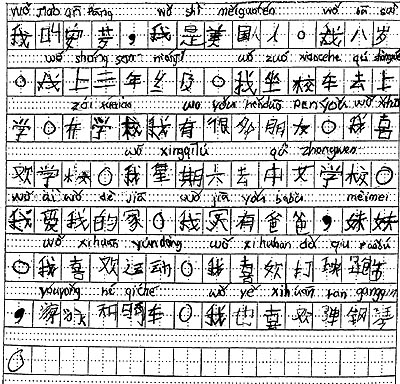 wǒ shì měiguórén wǒ bā suì
我叫安,我是美国人。我八岁
wǒ shàng sān niánjí wǒ zuò xiàochē qù
。我上三年级。我坐校车去上
zài wǒ yǒu hěnduō péngyou wǒ
学。在学校我有很多朋友。我喜
wǒ xīngqīliù qù zhongwen
欢学校。我星期六去中文学校。
wǒ ài wǒ de jiā wǒ jiā yǒu bàba mèimei
我爱我的家。我家有爸爸,妹妹
wǒ xihuan yùndòng wǒ xihuan dǎ qiu
。我喜欢运动。我喜欢打球跑步
yóuyǒng hé qíchē wǒ yě xihuān tan gangqin
,游泳和骑车。我也喜欢弹钢琴
。